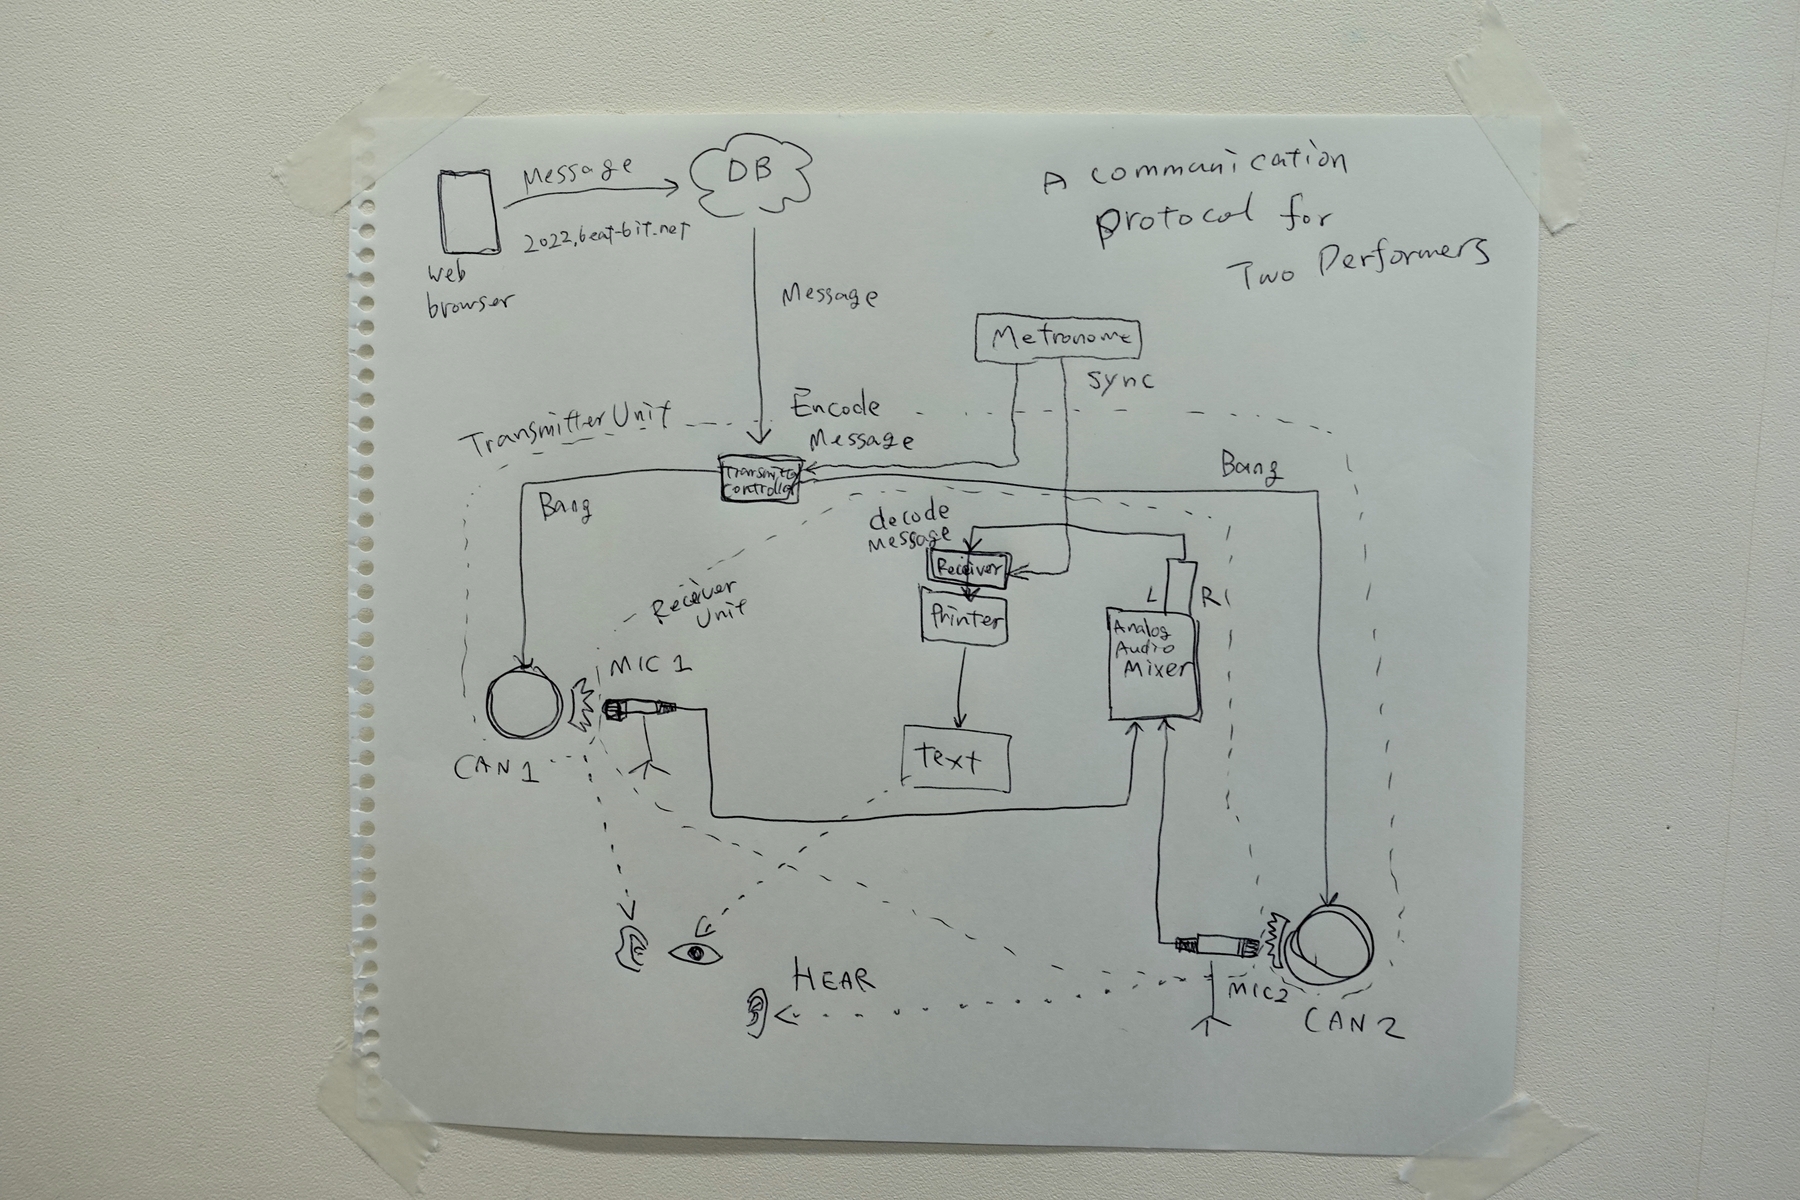 Message
DB
2022.beat-bit.net
web
browser
A communication
protocol for
Two Performers
Message
Metronome
sync
Transmitter Unit
Encode
Message
Transmitter
Controller
Bang
Bang
decode
Message
Receiver
Printer
Receiver
Unit
L
R
Analog
Audio
Mixer
MIC 1
CAN 1
text
HEAR
MIC2
CAN 2